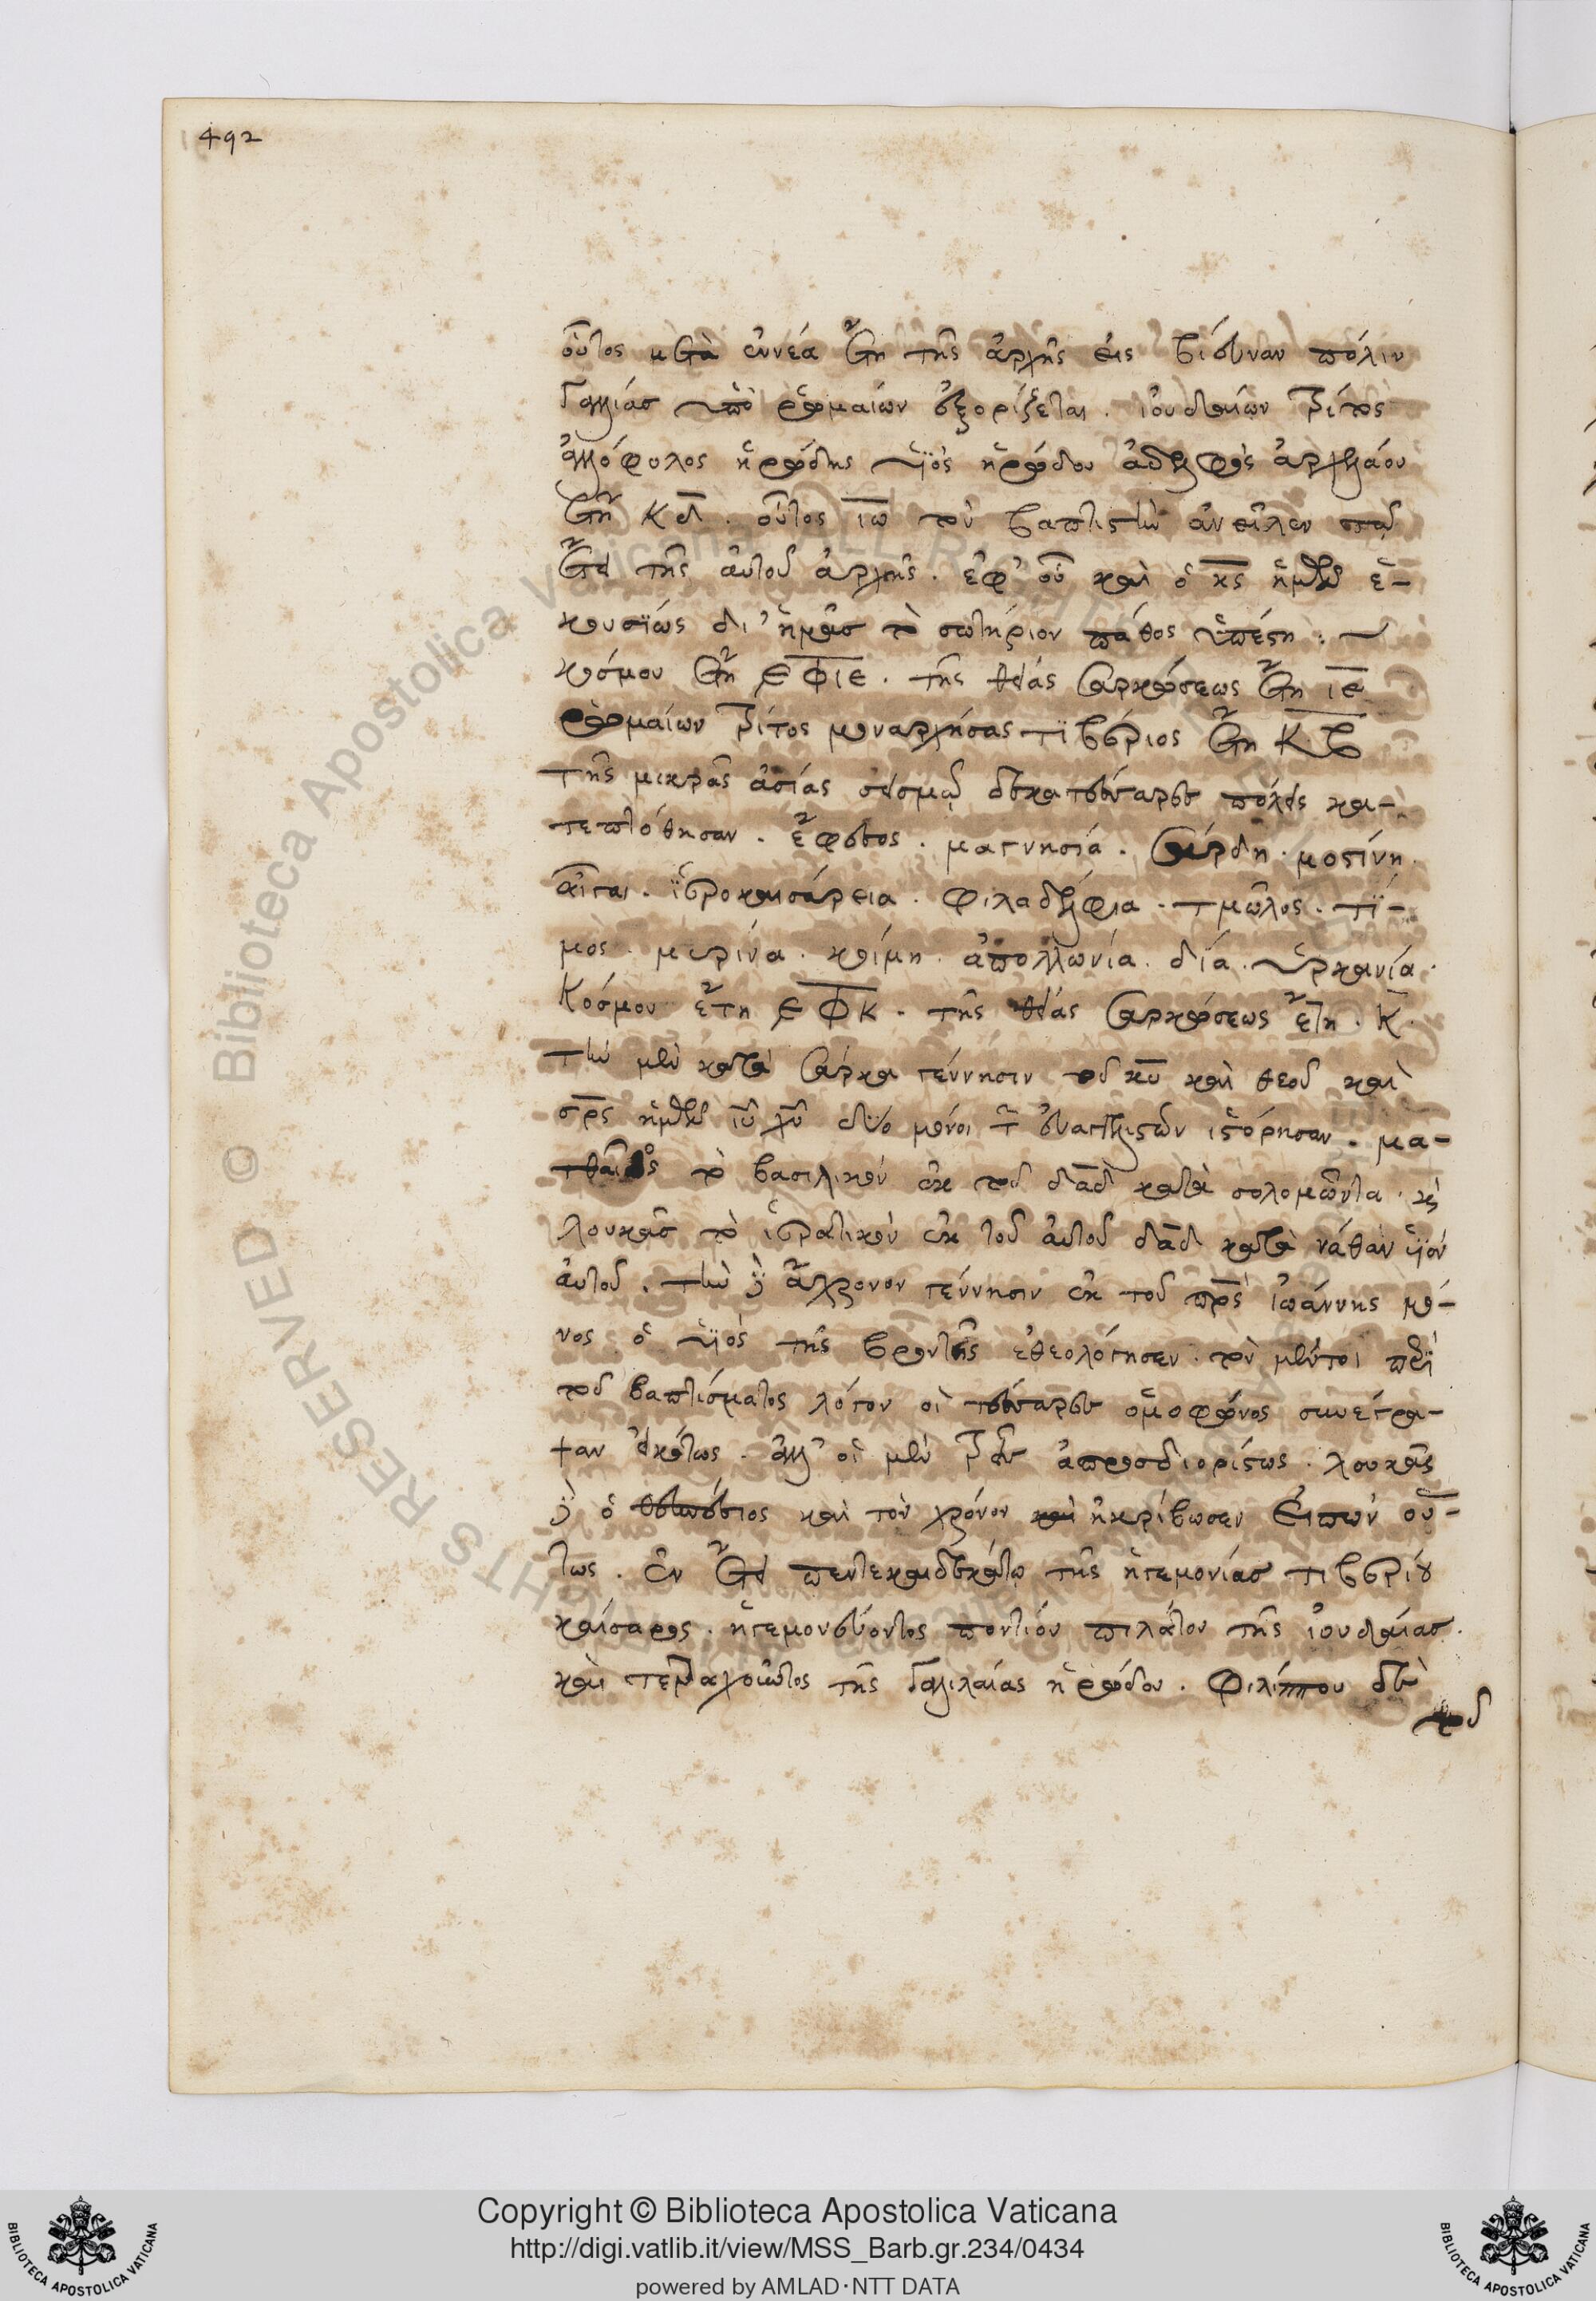 492
οὗτος μετὰ ἐννέα ἔτη τῆς ἀρχῆς εἰς βίενναν πόλιν
Γαλλίας ὑπὸ ῥωμαίων ἐξορίζεται. ἰουδαίων τρίτος
ἀλλόφυλος ἡρώδης υἱὸς ἡρώδου ἀδελφὸς ἀρχελάου
ἔτη κδ. οὗτος ἰω τὸν βαπτιστὴν ἀνεῖλεν
ἔτει τῆς αὐτοῦ ἀρχῆς. ἐφ' οὗ καὶ ὁ κς ἡμῶν ἑ-
κουσίως δι' ἡμᾶς τὸ σωτήριον πάθος ὑπέστη :~
κόσμου ἔτη ͵εφιε. τῆς θείας σαρκώσεως ἔτη ιε
ῥωμαίων τρίτος μοναρχήσας τϊβέριος ἔτη κβ
τῆς μικρᾶς ἀσίας σεισμῷ δεκατέσσαρες πόλεις κα-
τεπτόθησαν. ἔφεσος. μαγνησία. σάρδη. μοστίνη.
αἶγαι. ἱεροκαισάρεια. φιλαδέλφια. τμῶλος. τί-
μος. μυρίνα. κοίμη. ἀπολλωνία. δία. ὑρκανία.
Κόσμου ἔτη ͵εφκ. τῆς θείας σαρκώσεως ἔτη. κ.
τὴν μὲν κατὰ σάρκα γέννησιν τοῦ κυ καὶ θεοῦ καὶ
σρς ἡμῶν ιυ χυ δύο μόνοι τ εὐαγγελιστῶν ἱστόρησαν. μα-
τθαῖος τὸ βασιλικὸν ἐκ τοῦ δαδ κατὰ σολομῶντα. κὶ
λουκᾶς τὸ ἱερατικὸν ἐκ τοῦ αὐτοῦ δαδ κατὰ νάθαν υἱὸν
αὐτοῦ. τὴν δὲ ἄχρονον γέννησιν ἐκ τοῦ πρς ἰωάννης μό-
νος ὁ υἱὸς τῆς βροντῆς ἐθεολόγησεν. τὸν μέντοι περὶ
τοῦ βαπτίσματος λόγον οἱ τέσσαρες ὁμοφώνος συνέγρα-
ψαν εἰκότως. ἀλλ' οἱ μὲν τρεῖς ἀπροσδιορίστως. λουκᾶς
δὲ ὁ θεσπέσιος καὶ τὸν χρόνον καὶ ἠκρίβωσεν εἰπὼν οὕ-
τως. ἐν ἔτει πεντεκαιδεκάτῳ τῆς ἡγεμονίας τιβερίου
καίσαρος. ἡγεμονεύοντος ποντίου πιλάτου τῆς ἰουδαίας.
καὶ τετραρχοῦντος τῆς Γαλιλαίας ἡρώδου. Φιλίππου δὲ
τοῦ
Copyright © Biblioteca Apostolica Vaticana
http://digi.vatlib.it/view/MSS_Barb.gr.234/0434
powered by AMLAD·NTT DATA